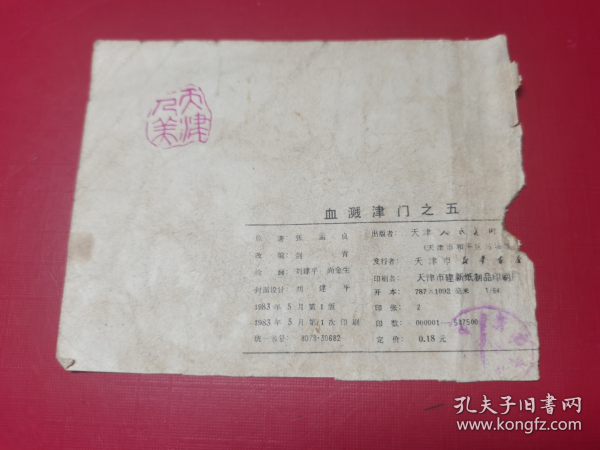 天津
人美
血溅津门之五
原著 张孟良
改编 剑青
绘画 刘建平 尚金生
封面设计 刘建平
1983年5月第1版
1983年5月第1次印刷
统一书号: 8073·30682
出版者: 天津人民美
(天津市和平区
发行者: 天津市新华书店
印刷者: 天津市建新纸制品印刷厂
开本: 787×1092 毫米 1/64
印张: 2
印数: 000001—517500
定价: 0.18元
孔夫子旧书网
www.kongfz.com